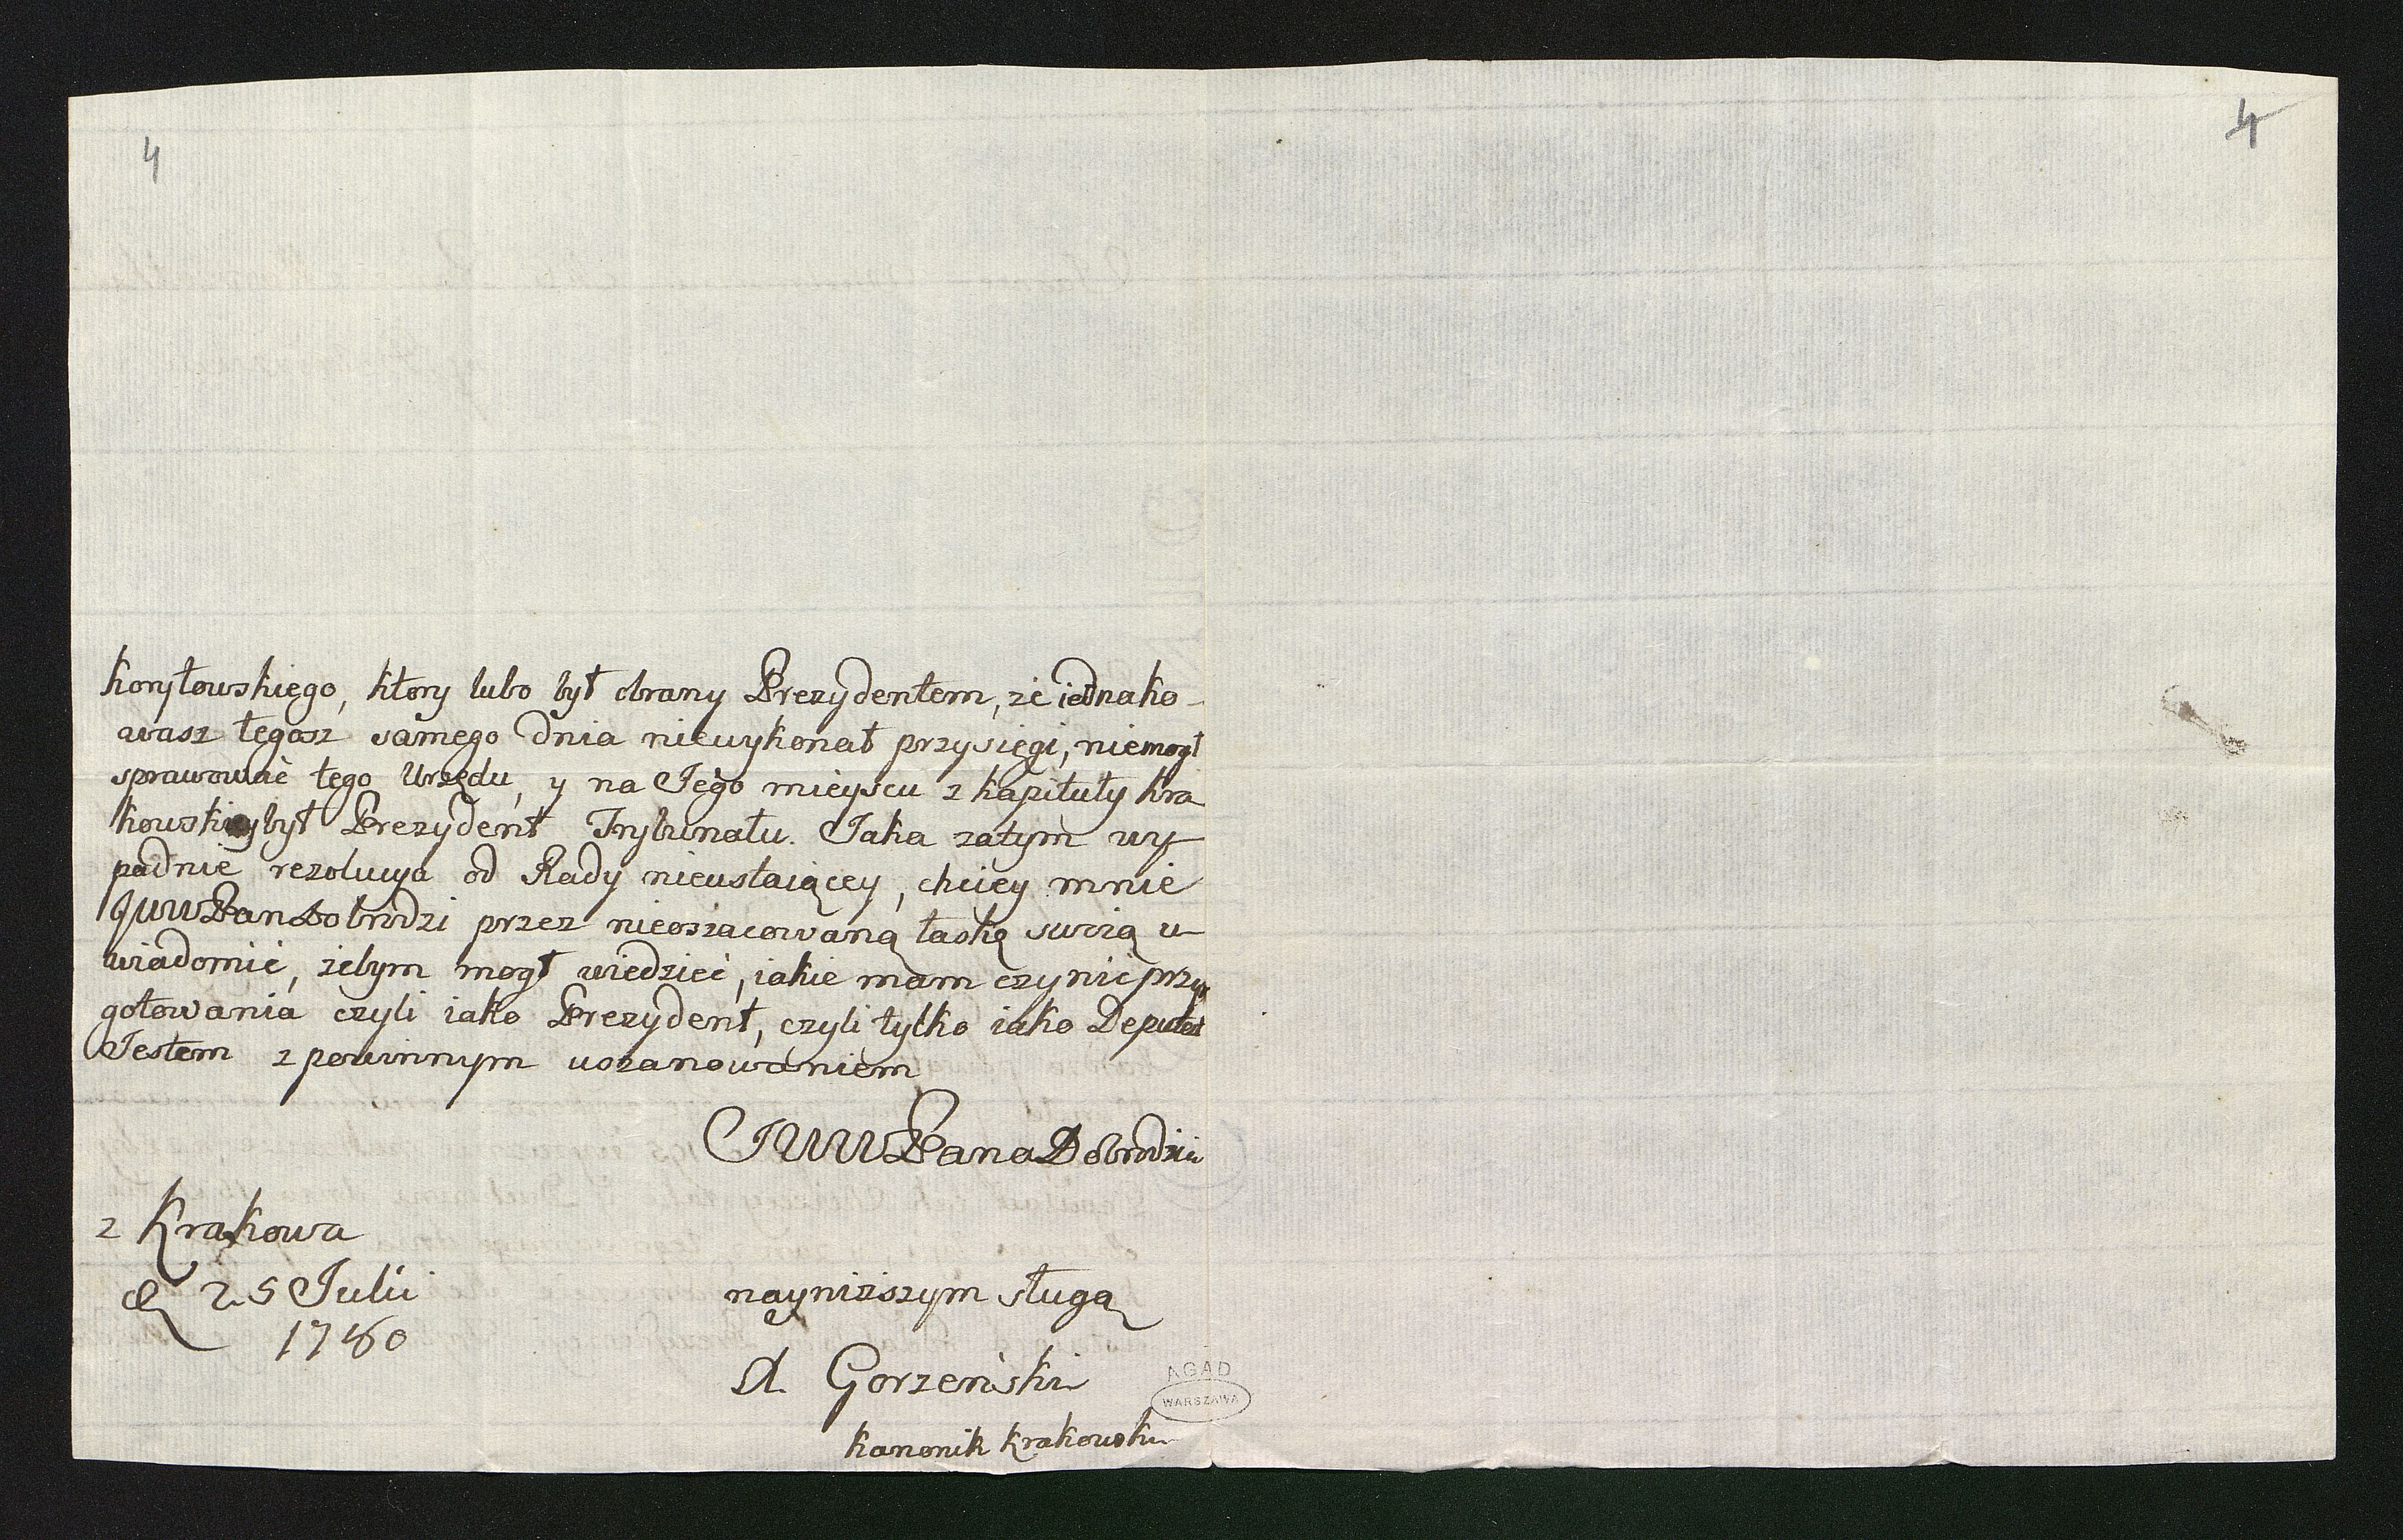 4
4
Korytowskiego, ktory lubo był obrany Prezydentem, że iednako-
wasz tegosz samego dnia niewykonał przysięgi, niemogł
sprawować tego Urzędu, y na Jego mieyscu z kapituły Kra
kowskiey był Prezydent Trybunału. Jaka zatym wy-
padnie rezolucya od Rady nieustaiącey, chciey mnie
JWW Pan Dobrodzi przez nieoszacowaną łaskę swoią u-
wiadomić, żebym mogł wiedzieć, iakie mam czynić przy
gotowania czyli iako Prezydent, czyli tylko iako Deputat
Jestem z powinnym uszanowaniem
JWW Pana Dobrodzieia
z Krakowa
d 25 Julii
1780
nayniższym sługą
A. Gorzeński
Kanonik Krakowski
AGAD
WARSZAWA